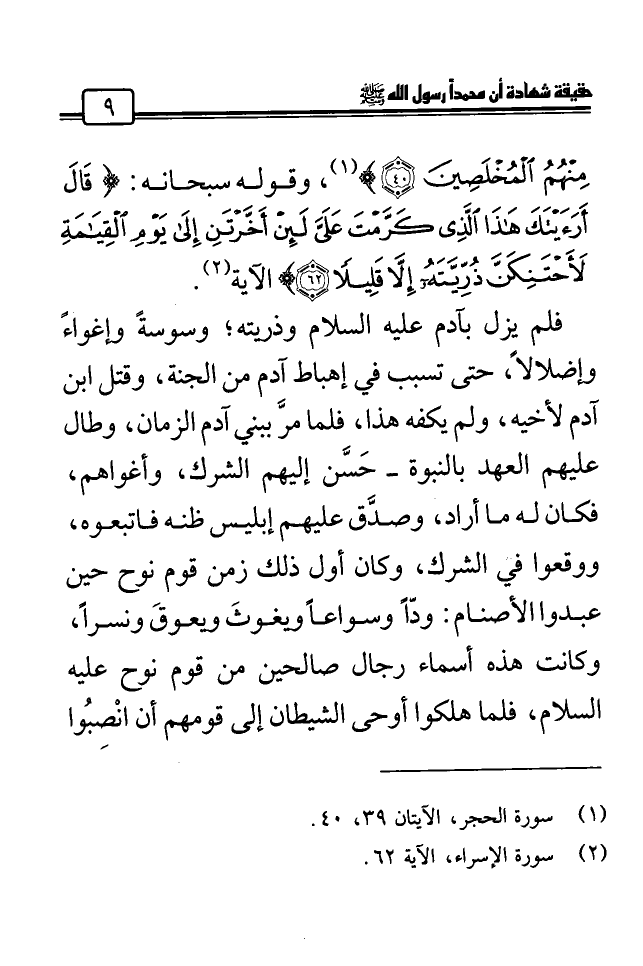 حقيقة شهادة أن محمداً رسول الله ﷺ
٩
مِنْهُمُ الْمُخْلَصِينَ ﴿٤٠﴾ ﴾(١)، وقوله سبحانه: ﴿ قَالَ
أَرَءَيْتَكَ هَٰذَا الَّذِي كَرَّمْتَ عَلَيَّ لَئِنْ أَخَّرْتَنِ إِلَىٰ يَوْمِ الْقِيَٰمَةِ
لَأَحْتَنِكَنَّ ذُرِّيَّتَهُۥٓ إِلَّا قَلِيلًا ﴿٦٢﴾ ﴾ الآية(٢).
فلم يزل بآدم عليه السلام وذريته؛ وسوسةً وإغواءً
وإضلالاً، حتى تسبب في إهباط آدم من الجنة، وقتل ابن
آدم لأخيه، ولم يكفه هذا، فلما مرَّ ببني آدم الزمان، وطال
عليهم العهد بالنبوة ـ حَسَّن إليهم الشرك، وأغواهم،
فكان له ما أراد، وصدَّق عليهم إبليس ظنه فاتبعوه،
ووقعوا في الشرك، وكان أول ذلك زمن قوم نوح حين
عبدوا الأصنام: ودّاً وسواعاً ويغوثَ ويعوقَ ونسراً،
وكانت هذه أسماء رجال صالحين من قوم نوح عليه
السلام، فلما هلكوا أوحى الشيطان إلى قومهم أن انْصِبُوا
(١) سورة الحجر، الآيتان ٣٩، ٤٠.
(٢) سورة الإسراء، الآية ٦٢.